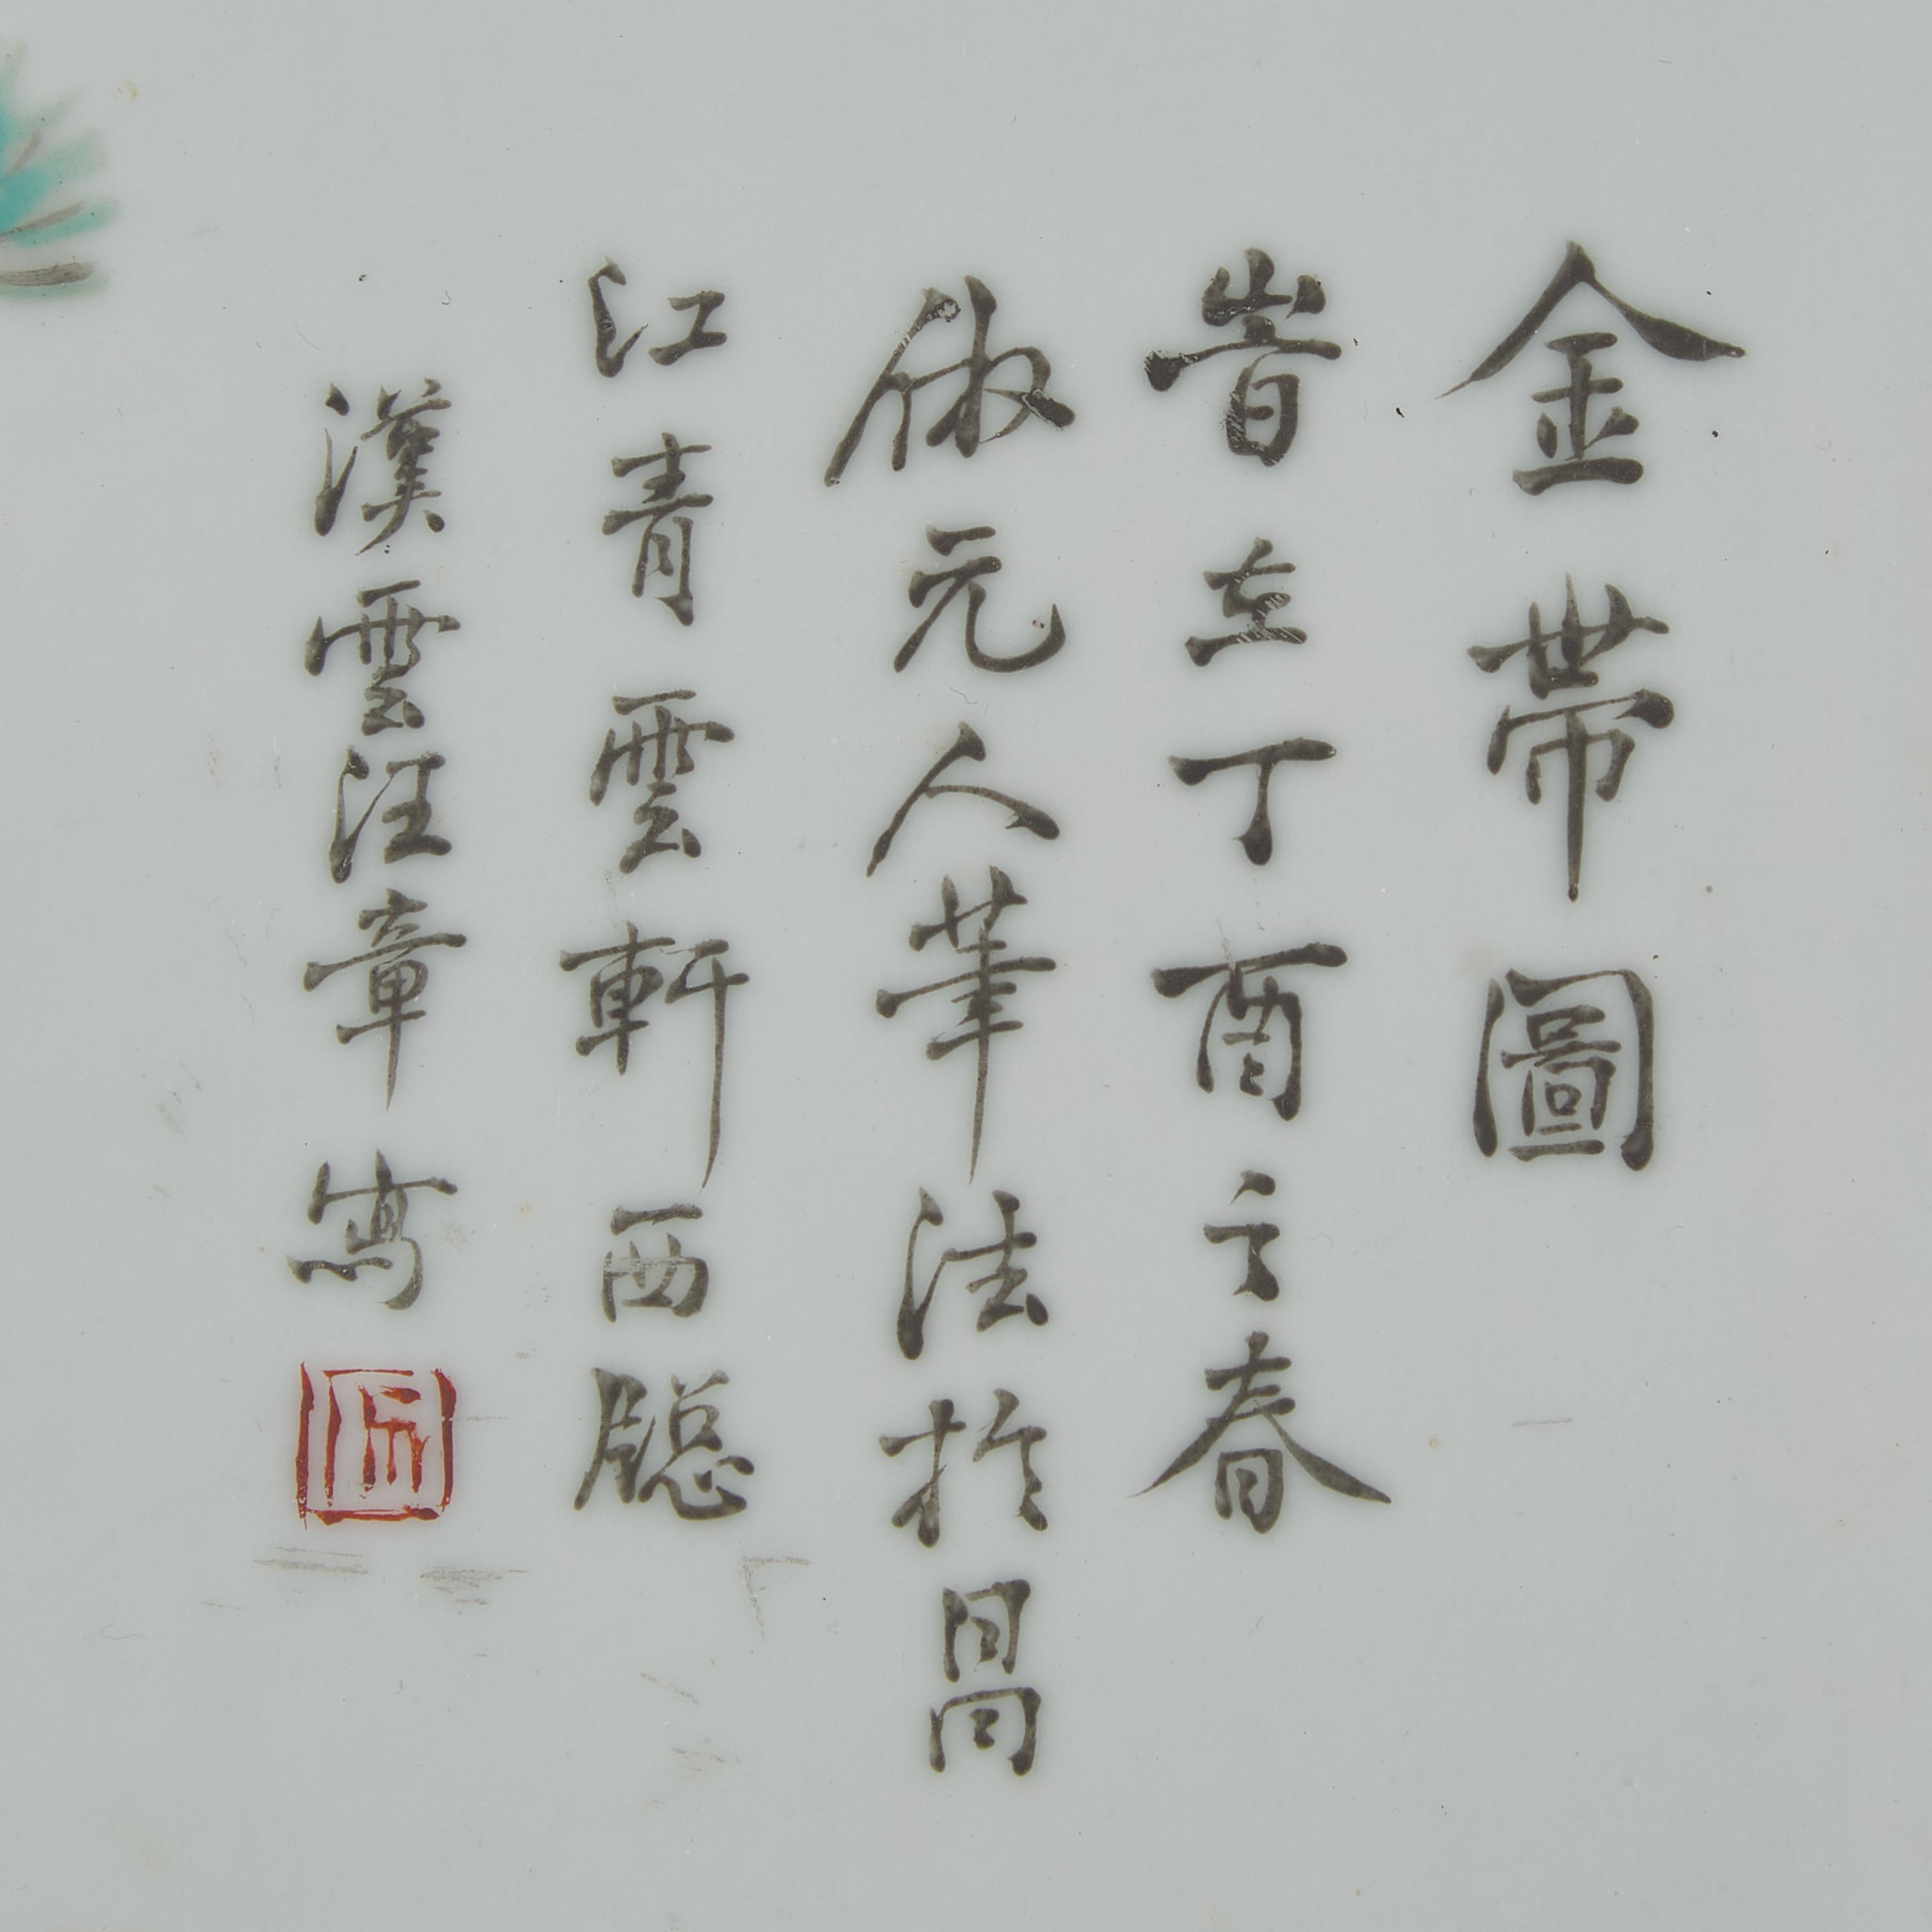 金帶圖
旹在丁酉之春
倣元人筆法於昌
江青雲軒西牕
漢雲汪章寫